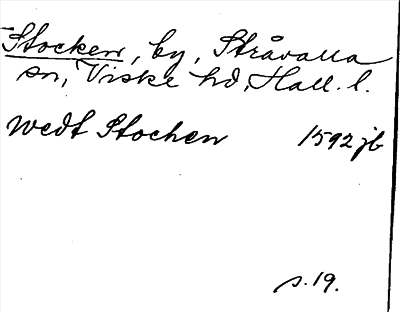 Stocken, by, Stråvalla
sn, Viske hd, Hall. l.
wedt Stochen 1592 jb
s. 19.